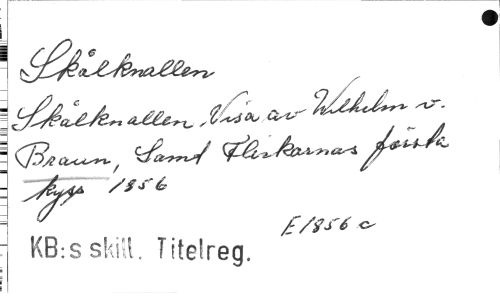 Skålknallen
Skålknallen, Visa av Wilhelm v.
Braun, Samt Flickarnas första
kyss 1856
E 1856 c
KB:s skill. Titelreg.